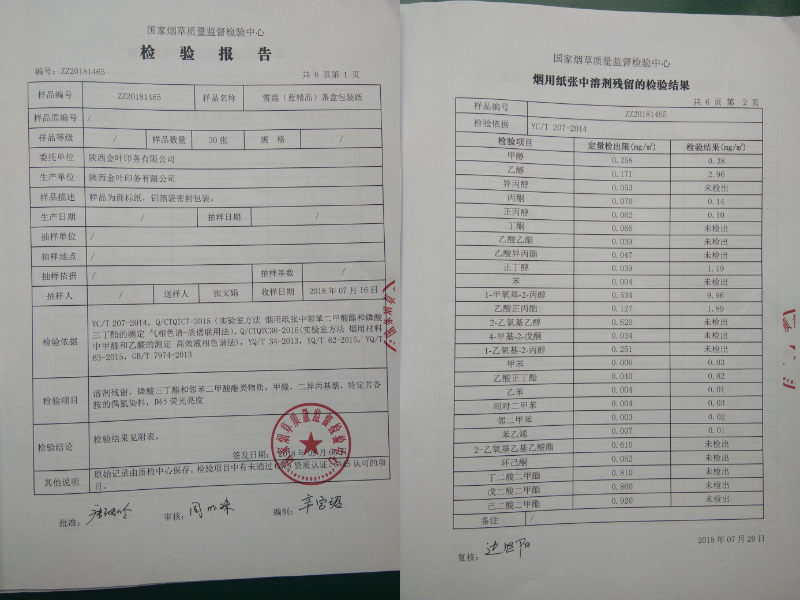 国家烟草质量监督检验中心
检 验 报 告
编号：ZZ20181465
共 6 页 第 1 页
样品编号 ZZ20181465 样品名称 雪莲（蓝精品）条盒包装纸
样品原编号 /
样品等级 / 样品数量 30 张 规 格 /
委托单位 陕西金叶印务有限公司
生产单位 陕西金叶印务有限公司
样品描述 样品为商标纸，铝箔袋密封包装。
生产日期 / 抽样日期 /
抽样单位 /
抽样地点 /
抽样依据 / 抽样基数 /
抽样人 / 送样人 张文娟 收样日期 2018 年 07 月 16 日
检验依据
YC/T 207-2014，Q/CTQTC7-2015（实验室方法 烟用纸张中邻苯二甲酸酯和磷酸
三丁酯的测定 气相色谱-质谱联用法），Q/CTQTC36-2016（实验室方法 烟用材料
中甲醛和乙醛的测定 高效液相色谱法），YQ/T 34-2013，YQ/T 62-2015，YQ/T
63-2015，GB/T 7974-2013
检验项目
溶剂残留，磷酸三丁酯和邻苯二甲酸酯类物质，甲醛，二异丙基萘，特定芳香
胺的偶氮染料，D65 荧光亮度
检验结论 检验结果见附表。
签发日期：2018 年
其他说明
原始记录由质检中心保存。检验项目中有未通过 资质认证、 认可的项
目。
批准： 审核： 编制：
国家烟草质量监督检验中心
烟用纸张中溶剂残留的检验结果
共 6 页 第 2 页
样品编号 ZZ20181465
检验依据 YC/T 207-2014
检验项目 定量检出限(mg/㎡) 检验结果(mg/㎡)
甲醇 0.258 0.38
乙醇 0.171 2.96
异丙醇 0.053 未检出
丙酮 0.070 0.14
正丙醇 0.062 0.10
丁酮 0.066 未检出
乙酸乙酯 0.039 未检出
乙酸异丙酯 0.047 未检出
正丁醇 0.039 1.19
苯 0.004 未检出
1-甲氧基-2-丙醇 0.534 9.96
乙酸正丙酯 0.127 1.89
2-乙氧基乙醇 0.620 未检出
4-甲基-2-戊酮 0.034 未检出
1-乙氧基-2-丙醇 0.251 未检出
甲苯 0.006 0.03
乙酸正丁酯 0.040 0.82
乙苯 0.004 0.01
间对二甲苯 0.004 0.03
邻二甲苯 0.003 0.02
苯乙烯 0.007 0.01
2-乙氧基乙基乙酸酯 0.610 未检出
环己酮 0.052 未检出
丁二酸二甲酯 0.810 未检出
戊二酸二甲酯 0.860 未检出
己二酸二甲酯 0.920 未检出
备注 /
2018 年 07 月 20 日
复核：